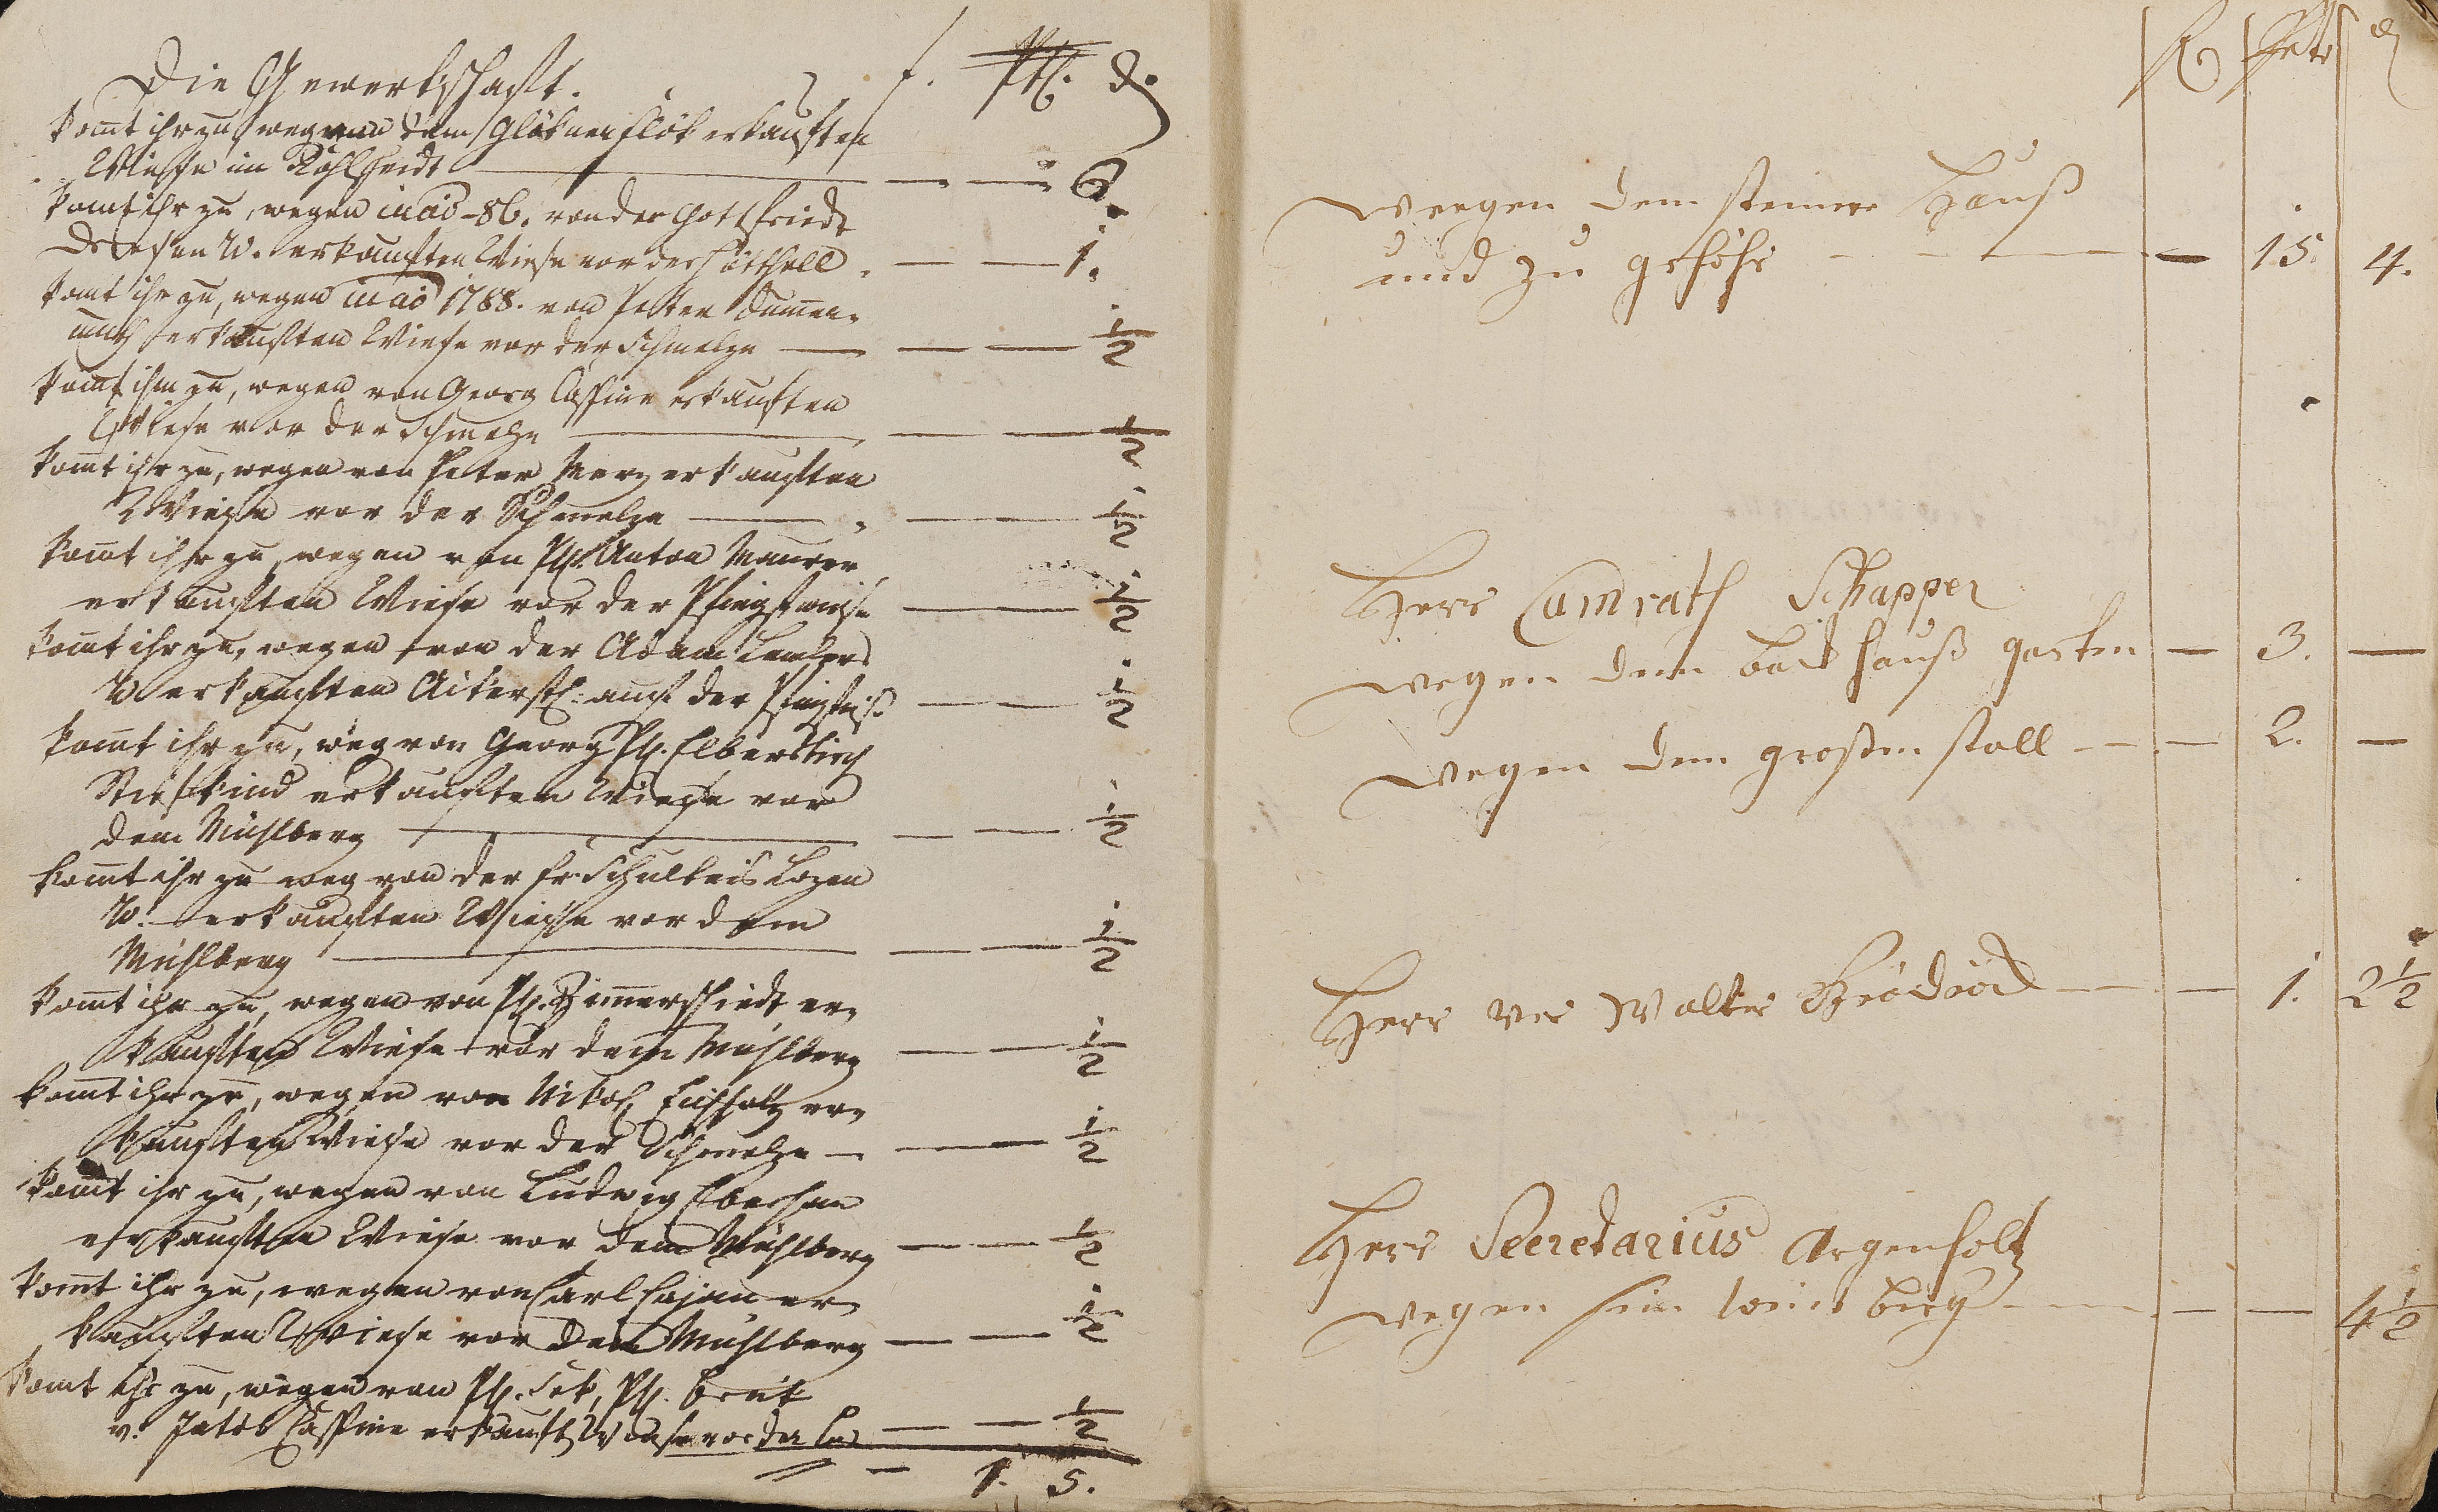 Die Gewerkschaft. f. Ptz. d.
komt ihr zu, wegen dem erkauften
Wiesse im Kohlscheidt — — 6.
komt ihr zu, wegen in aō - 86. von der Gottfriedt
W. erkauften Wiese vor der — — 1.
komt ihr zu, wegen in aō 1788. von Peter
erkauften Wiese vor der Schmelze — — — 1/2
komt ihr zu, wegen von Georg Cassine erkauften
Wiese vor der Schmelze — — — 1/2
komt ihr zu, wegen von Peter Merz erkauften
Wiese vor der Schmelze — — 1/2
komt ihr zu, wegen von Anton Maurer
erkauften Wiese vor der Pfingstwiese — 1/2
komt ihr zu, wegen von der Adam
W. erkauften Ackerst: auf der — — 1/2
komt ihr zu, weg von Georg Ph. Elberskirch
Stiefkind erkauften Wiese vor
dem Mühlberg — — — 1/2
komt ihr zu weg von der Fr. Schulteis Lozen
W. erkauften Wiese vor dem
Mühlberg — — — 1/2
komt ihr zu, wegen von Ph. Zimerschiedt er-
kauften Wiese vor dem Mühlberg — — 1/2
komt ihr zu, wegen von Nikol. Eichholtz er-
kauften Wiese vor der Schmelze — — 1/2
komt ihr zu, wegen von Ludwig Eberhan
erkauften Wiese vor dem Mühlberg — — 1/2
komt ihr zu, wegen von Carl Cajan er-
kauften Wiese vor dem Mühlberg — — 1/2
komt ihr zu, wegen von Ph. Ph.
v. Jakob Cassine erkauft Wiese vor der — — 1/2
— 1. 5.
wergen dem steinere Hauß
und zu gehöhr — — 15. 4.
Herr Camrath Schapper
wegen dem back hauß garten — 3. —
wegen dem großen stall — — 2. —
Herr ver Walter — — 1. 2 1/2
Herr Secretarius Argenholtz
wegen sein wein berg — — — 4 1/2